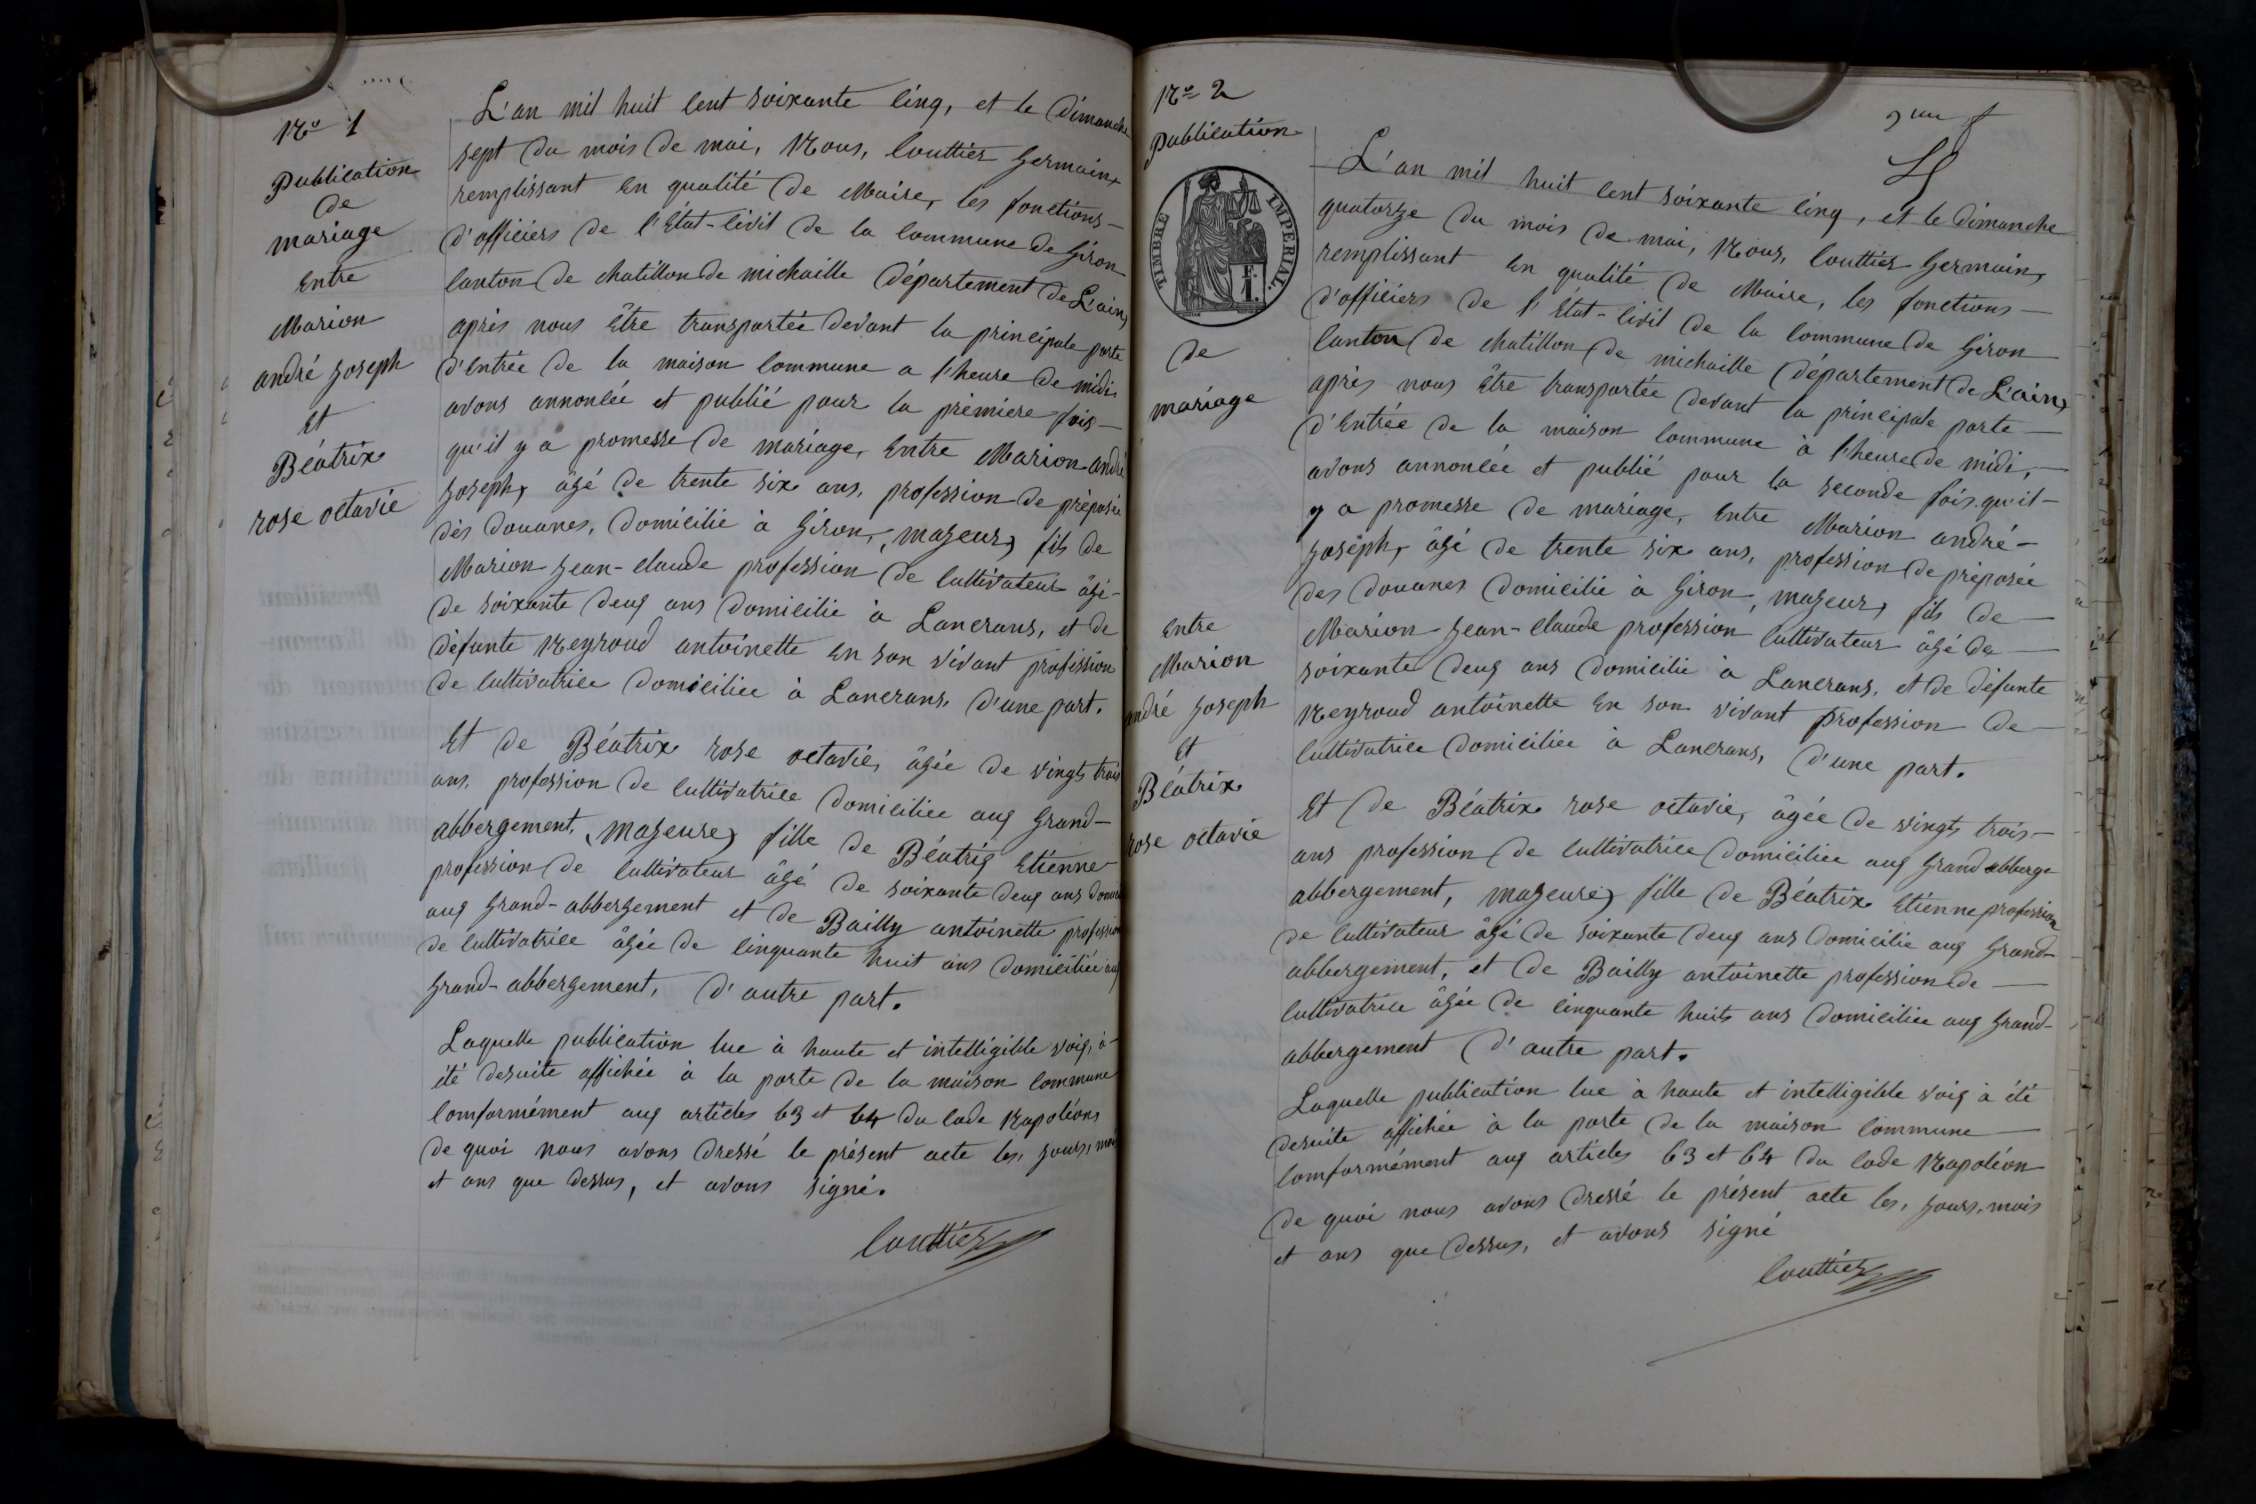 No 1
Publication
de
mariage
Entre
Marion
andré Joseph
et
Béatrix
rose octavie
L'an mil huit Cent soixante Cinq, et le dimanche
sept du mois de mai, Nous, Couttier Germain,
remplissant En qualité de Maire, les fonctions
d'officiers de l'État-Civil de la Commune de Giron
Canton de chatillon de michaille département de L'ain,
après nous être transportée devant la principale porte
d'Entrée de la maison Commune a l'heure de midi,
avons annoncée et publié pour la première fois
qu'il y a promesse de mariage, Entre Marion andré
Joseph, âgé de trente six ans, profession de préposée
dès douanes, domicilié à Giron, majeur, fils de
Marion Jean-claude profession de Cultivateur âgé
de soixante deux ans domicilié à Lancrans, et de
défunte Neyroud antoinette En son vivant profission
de Cultivatrice domiciliée à Lancrans, d'une part.
Et de Béatrix rose octavie, âgée de vingts trois
ans, profession de Cultivatrice domiciliée aux Grand-
abbergement, majeure, fille de Béatrix Etienne
profession de Cultivateur âgé de soixante deux ans
aux Grand-abbergement et de Bailly antoinette profession
de Cultivatrice âgée de Cinquante huit ans domiciliée aux
Grand-abbergement, d'autre part.
Laquelle publication lue à haute et intelligible voix, à
été desuite affichée à la porte de la maison Commune
Comformément aux articles 63 et 64 du Code Napoléons
de quoi nous avons dressé le présent acte les, jours, mois
et ans que dessus, et avons signé.
Couttier
No 2
Publication
TIMBRE IMPÉRIAL.
de
mariage
Entre
Marion
andré Joseph
et
Béatrix
rose octavie
L'an mil huit Cent soixante Cinq, et le dimanche
quatorze du mois de mai, Nous, Couttier Germain,
remplissant En qualité de Maire, les fonctions
d'officiers de l'État-Civil de la Commune de Giron
Canton de chatillon de michaille département de L'ain,
après nous être transportée devant la principale porte
d'Entrée de la maison Commune à l'heure de midi,
avons annoncée et publié pour la seconde fois qu'il
y a promesse de mariage, Entre Marion andré
Joseph, âgé de trente six ans, profession de préposée
des douanes domicilié à Giron, majeur, fils de
Marion Jean-claude profession Cultivateur âgé de
soixante deux ans domicilié à Lancrans, et de défunte
Neyroud antoinette En son vivant profession de
Cultivatrice domiciliée à Lancrans, d'une part.
Et de Béatrix rose octavie, âgée de vingts trois
ans profession de Cultivatrice domiciliée aux Grand abberge
abbergement, majeure, fille de Béatrix Etienne profession
de Cultivateur âgé de soixante deux ans domicilié aux Grand
abbergement, et de Bailly antoinette profession de
Cultivatrice âgée de Cinquante huits ans domiciliée aux Grand-
abbergement d'autre part.
Laquelle publication lue à haute et intelligible voix à été
desuite affichée à la porte de la maison Commune
Comformément aux articles 63 et 64 du Code Napoléon
de quoi nous avons dressé le présent acte les, jours, mois
et ans que dessus, et avons signé
Couttier